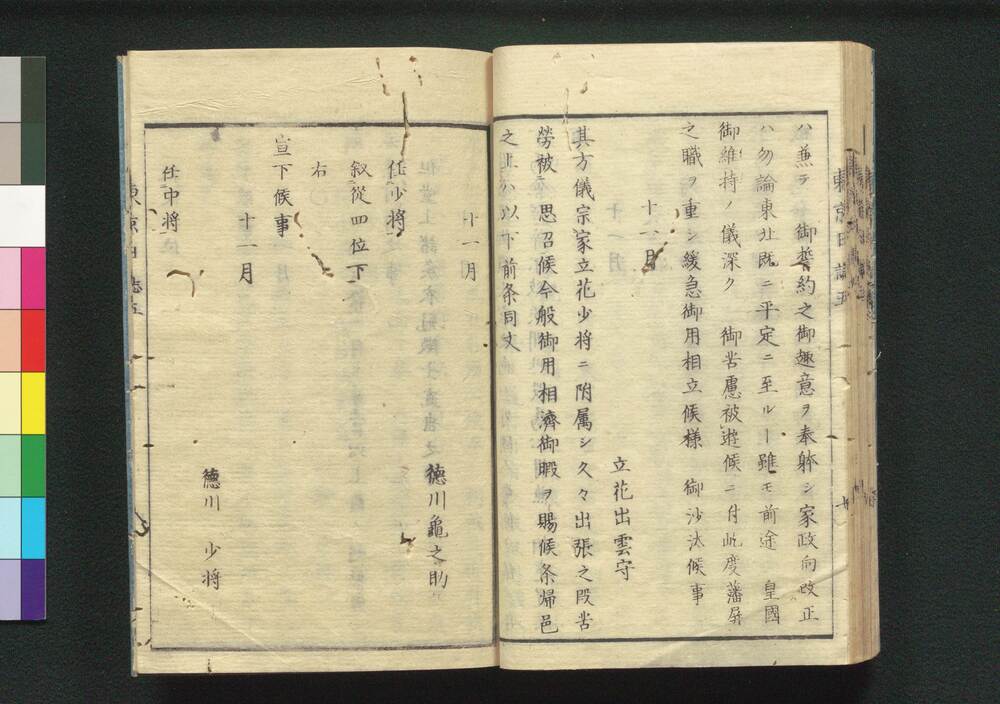 ハ兼テ 御誓約之御趣意ヲ奉躰シ家政向改正
ハ勿論東北既ニ平定ニ至ルト雖モ前途 皇國
御維持ノ儀深ク 御苦慮被遊候ニ付屹度藩屏
之職ヲ重シ緩急御用相立候様 御沙汰候事
十一月
立花出雲守
其方儀宗家立花少将ニ附属シ久々出張之段苦
勞被 思召候今般御用相濟御暇ヲ賜候条帰邑
之上ハ以下前条同文
十一月
徳川龜之助
任少将
叙從四位下
右
宣下候事
十一月
徳川 少将
任中将
東京日誌五